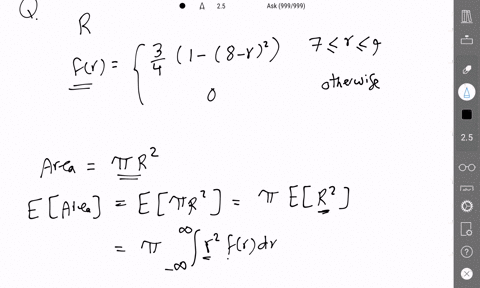 2.5 Ask (999/999)
Q. R
f(r) = { 3/4 (1-(8-r)²) 7 ≤ r ≤ 9
0 otherwise
2.5
Area = πR²
E[Area] = E[πR²] = π E[R²]
= π ∫_{-∞}^{∞} r² f(r) dr